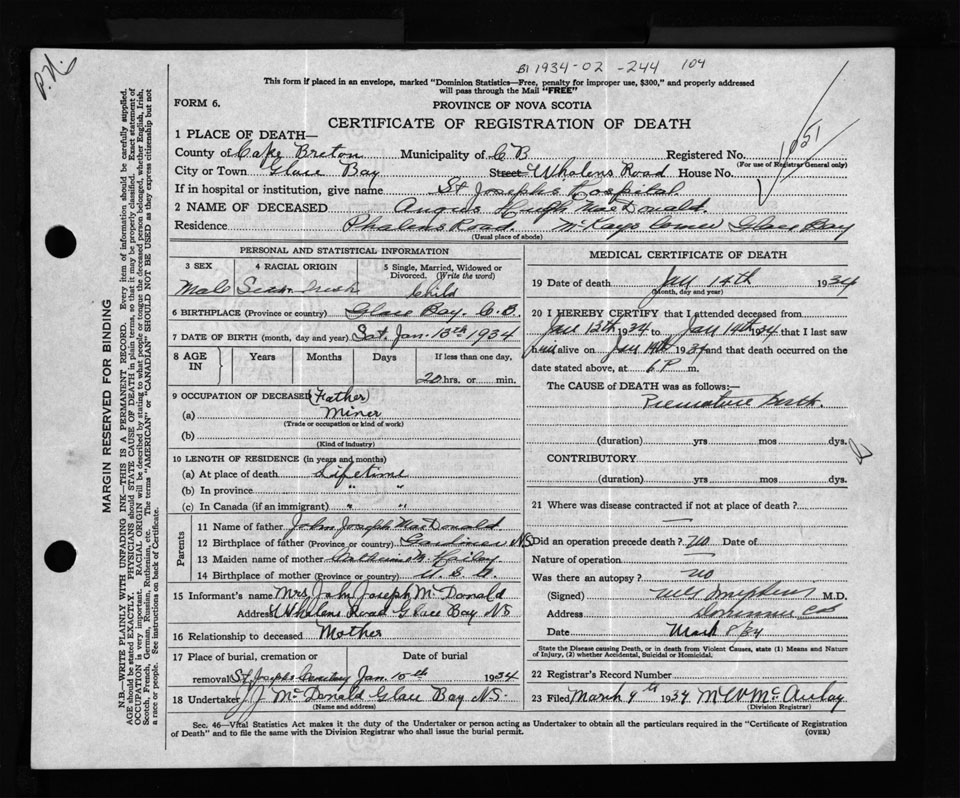 P.N.
B1 1934-02-244 104
This form if placed in an envelope, marked "Dominion Statistics—Free, penalty for improper use, $300," and properly addressed
will pass through the Mail "FREE"
FORM 6.
PROVINCE OF NOVA SCOTIA
CERTIFICATE OF REGISTRATION OF DEATH
1051
1 PLACE OF DEATH—
County of Cape Breton Municipality of C B Registered No.
(For use of Registrar General only)
City or Town Glace Bay Street Whalens Road House No.
If in hospital or institution, give name St Josephs Hospital.
2 NAME OF DECEASED Angus Hugh MacDonald.
Residence Phalens Road. McKays Corner Glace Bay
(Usual place of abode)
PERSONAL AND STATISTICAL INFORMATION
3 SEX 4 RACIAL ORIGIN 5 Single, Married, Widowed or Divorced. (Write the word)
Male Scotch Irish Child
6 BIRTHPLACE (Province or country) Glace Bay. C.B.
7 DATE OF BIRTH (month, day and year) Sat. Jan. 13th 1934
8 AGE IN Years Months Days If less than one day,
20 hrs. or min.
9 OCCUPATION OF DECEASED (Father
(a) Miner
(Trade or occupation or kind of work)
(b)
(Kind of industry)
10 LENGTH OF RESIDENCE (in years and months)
(a) At place of death Lifetime
(b) In province " "
(c) In Canada (if an immigrant) " "
Parents
11 Name of father John Joseph MacDonald
12 Birthplace of father (Province or country) Gardiner NS
13 Maiden name of mother
14 Birthplace of mother (Province or country) U.S.A.
15 Informant's name Mrs John Joseph McDonald
Address Whalens Road Glace Bay NS
16 Relationship to deceased Mother
17 Place of burial, cremation or removal Date of burial
St Josephs Cemetery Jan. 15th 1934
18 Undertaker J McDonald Glace Bay NS.
(Name and address)
MEDICAL CERTIFICATE OF DEATH
19 Date of death Jan 14th 1934
(Month, day and year)
20 I HEREBY CERTIFY that I attended deceased from
Jan 13th 1934 to Jan 14th 1934 that I last saw
him alive on Jan 14th 1934 and that death occurred on the
date stated above, at 6 P m.
The CAUSE OF DEATH was as follows:—
Premature Birth.
(duration) yrs mos dys.
CONTRIBUTORY
(duration) yrs mos dys.
21 Where was disease contracted if not at place of death?
—
Did an operation precede death? no Date of
Nature of operation —
Was there an autopsy? no
(Signed) M.D.
Address Dominion CB
Date Mar 8/34
State the Disease causing Death, or in death from Violent Causes, state (1) Means and Nature
of Injury, (2) whether Accidental, Suicidal or Homicidal.
22 Registrar's Record Number
23 Filed March 9th 1934 M W McAulay
(Division Registrar)
Sec. 46—Vital Statistics Act makes it the duty of the Undertaker or person acting as Undertaker to obtain all the particulars required in the "Certificate of Registration
of Death" and to file the same with the Division Registrar who shall issue the burial permit.
(OVER)
MARGIN RESERVED FOR BINDING
N.B.—WRITE PLAINLY WITH UNFADING INK—THIS IS A PERMANENT RECORD. Every item of information should be carefully supplied.
AGE should be stated EXACTLY. PHYSICIANS should STATE CAUSE OF DEATH in plain terms, so that it may be properly classified. Exact statement of
OCCUPATION is very important. RACIAL ORIGIN will be described by stating to what people or tongue the deceased person belonged, whether English, Irish,
Scotch, French, German, Russian, Ruthenian, etc. The terms "AMERICAN" or "CANADIAN" SHOULD NOT BE USED as they express citizenship but not
a race or people. See instructions on back of Certificate.